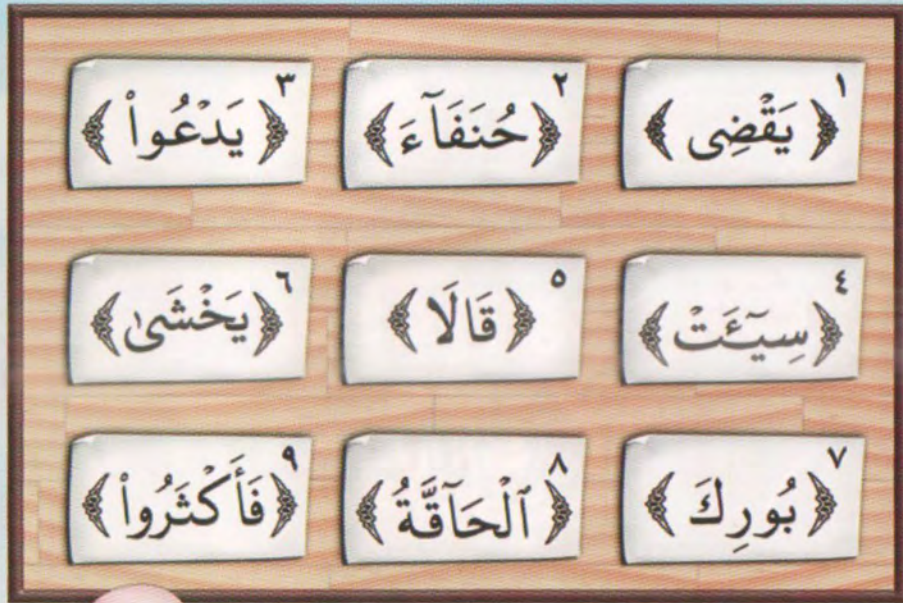 ١ ﴿ يَقْضِى ﴾
٢ ﴿ حُنَفَآءَ ﴾
٣ ﴿ يَدْعُوا۟ ﴾
٤ ﴿ سِيٓـَٔتْ ﴾
٥ ﴿ قَالَا ﴾
٦ ﴿ يَخْشَىٰ ﴾
٧ ﴿ بُورِكَ ﴾
٨ ﴿ ٱلْحَآقَّةُ ﴾
٩ ﴿ فَأَكْثَرُوا۟ ﴾